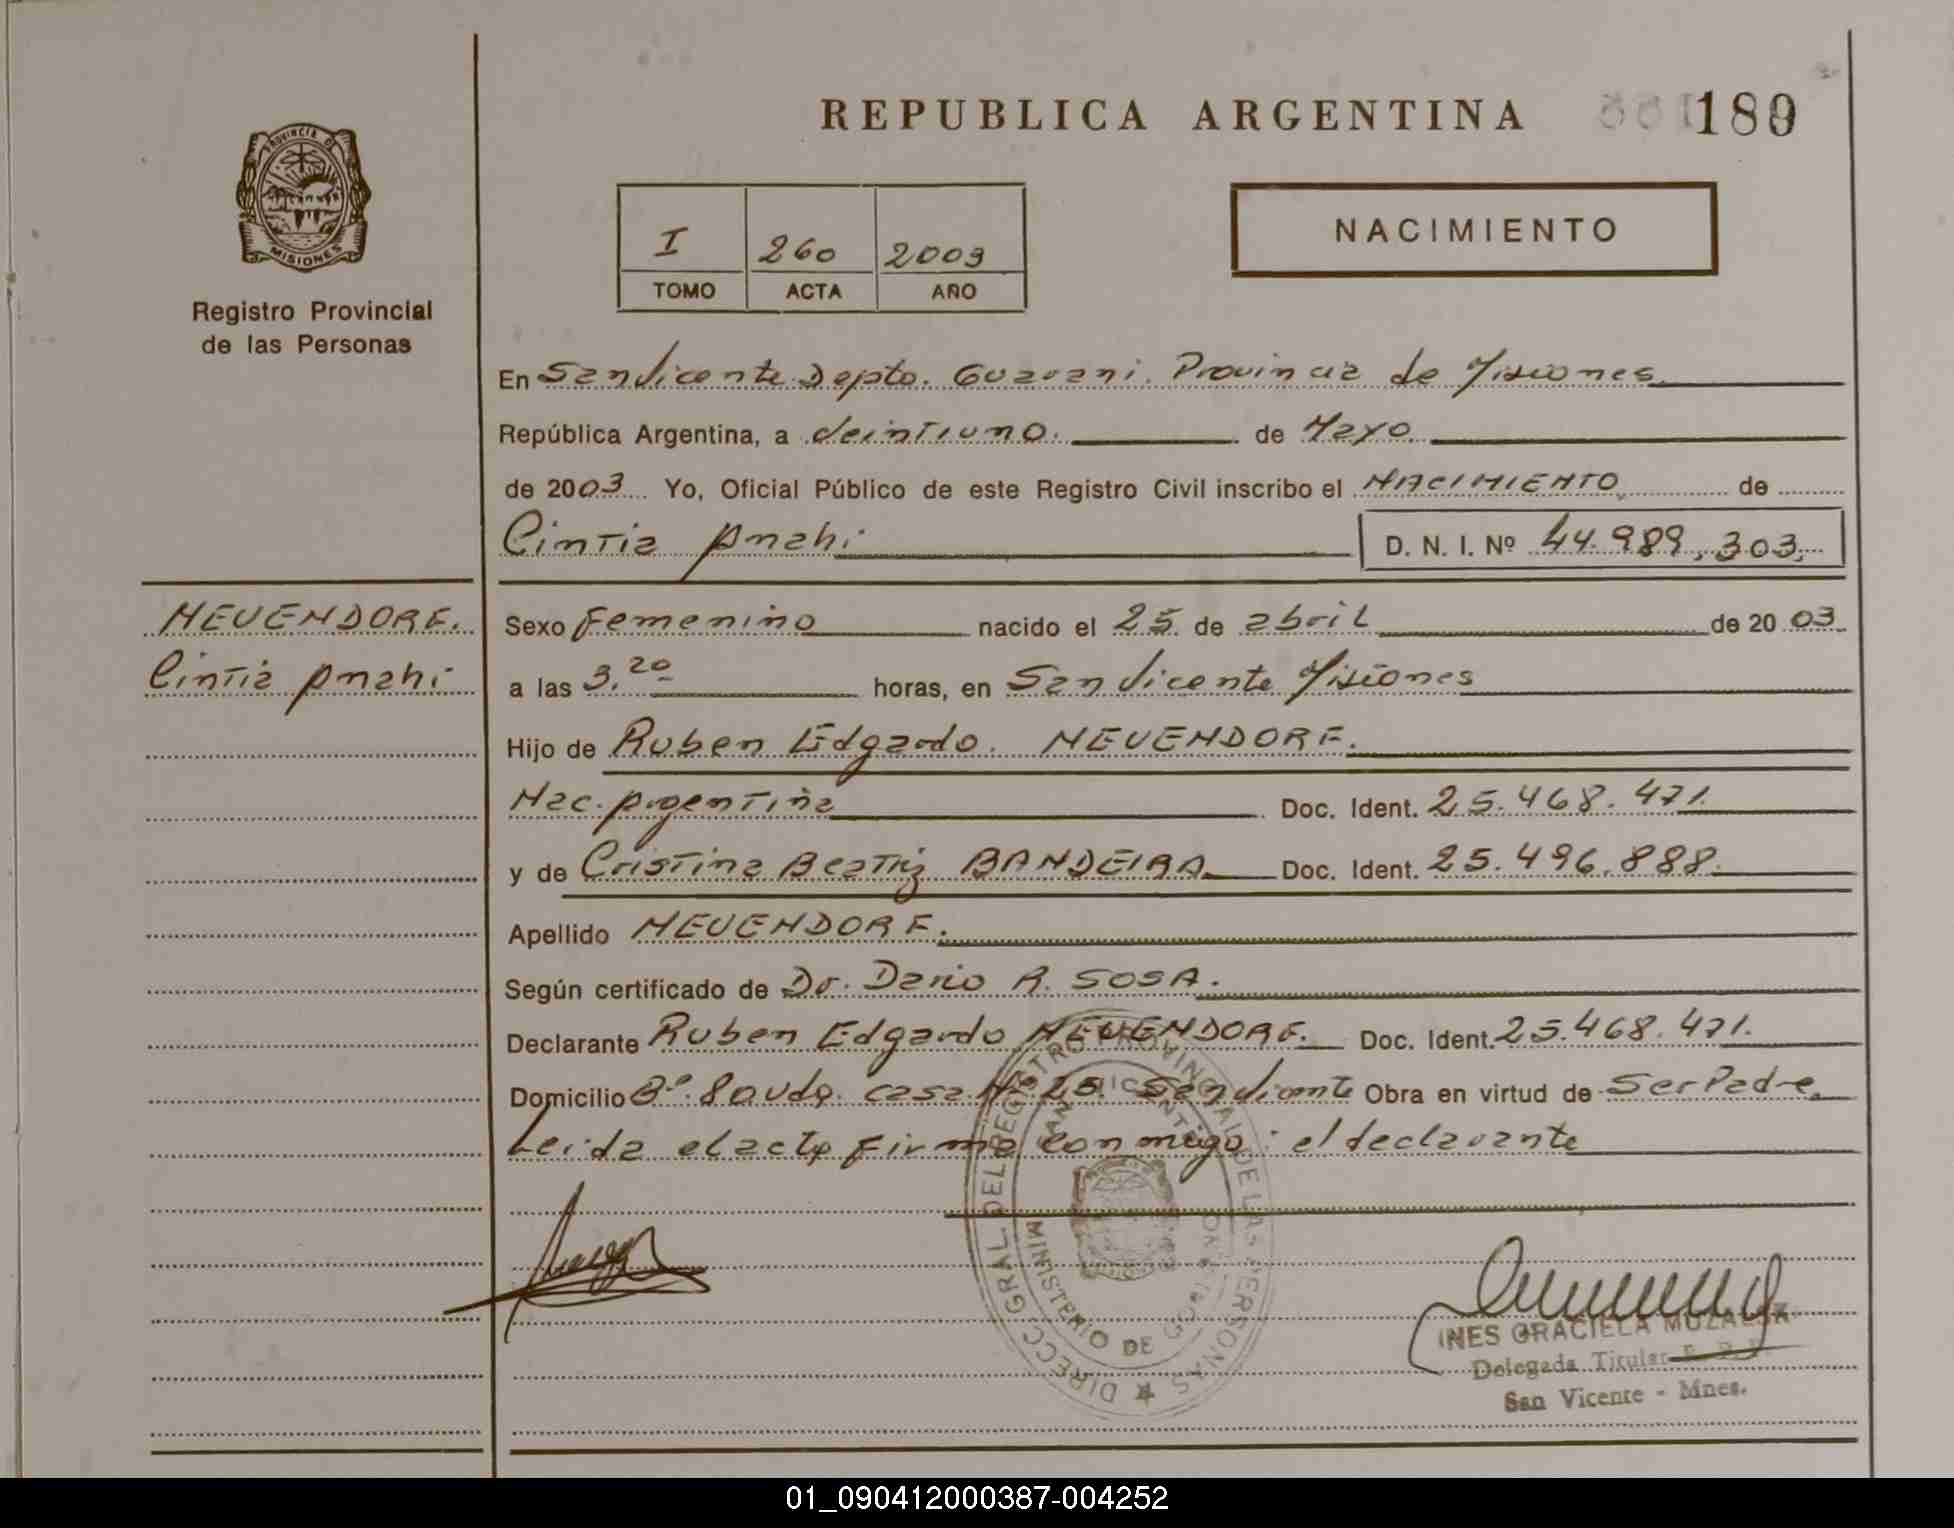 REPUBLICA ARGENTINA 189
PROVINCIA DE
MISIONES
Registro Provincial
de las Personas
I 260 2003
TOMO ACTA AÑO
NACIMIENTO
En San Vicente Depto. Guarani. Provincia de Misiones
República Argentina, a veintiuno. de Mayo.
de 2003 Yo, Oficial Público de este Registro Civil inscribo el NACIMIENTO de
Cintia Anahi D. N. I. Nº 44.989.303.
NEUENDORF.
Cintia Anahi
Sexo Femenino nacido el 25 de abril de 2003
a las 3,20 horas, en San Vicente Misiones
Hijo de Ruben Edgardo. NEUENDORF.
Nac. Argentina Doc. Ident. 25.468.471.
y de Cristina Beatriz BANDEIRA Doc. Ident. 25.496.888.
Apellido NEUENDORF.
Según certificado de Dr. Dario A. SOSA.
Declarante Ruben Edgardo NEUENDORF. Doc. Ident. 25.468.471.
Domicilio Bº. 80 Vdas. casa Nº 25. San Vicente Obra en virtud de Ser Padre.
Leida el acta firma conmigo: el declarante
DIRECC. GRAL DEL REGISTRO PROVINCIAL DE LAS PERSONAS
SAN VICENTE
MINISTERIO DE GOBIERNO
INES GRACIELA
Delegada Titular
San Vicente - Mnes.
01_090412000387-004252